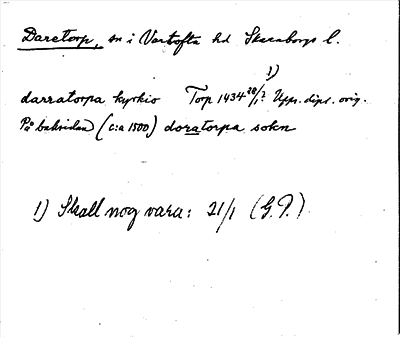 Daretorp, sn i Vartofta hd Skaraborgs l.
1)
darratorpa kyrkio Top 1434 20/1? Upps. dipl. orig.
På baksidan (c:a 1500) doratorpa sokn
1) Skall nog vara: 21/1 (G.P.)